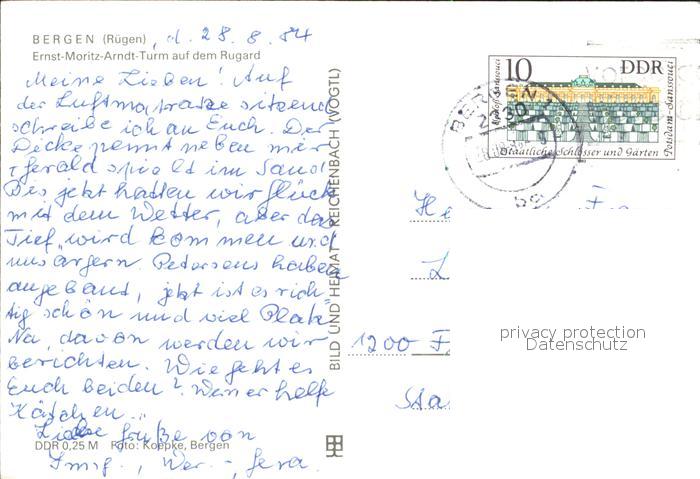 BERGEN (Rügen), d. 28. 8. 84
Ernst-Moritz-Arndt-Turm auf dem Rugard
Meine Lieben! Auf
der Luftmatratze sitzend
schreibe ich an Euch. Der
Dicke pennt neben mir
Gerald spielt im Sand
Bis jetzt hatten wir Glück
mit dem Wetter, aber das
Tief wird kommen und
uns ärgern. Petersens haben
angebaut, jetzt ist es rich-
tig schön und viel Platz
Na, davon werden wir
berichten. Wie geht es
Euch beiden?
Kätchen...
Liebe Grüße von
DDR 0,25 M Foto: Koepke, Bergen
BILD UND HEIMAT REICHENBACH (VOGTL)
10 DDR
Schloß Sanssouci
Potsdam-Sanssouci
Staatliche Schlösser und Gärten
BERGEN
2330
1200 F
Sta
privacy protection
Datenschutz